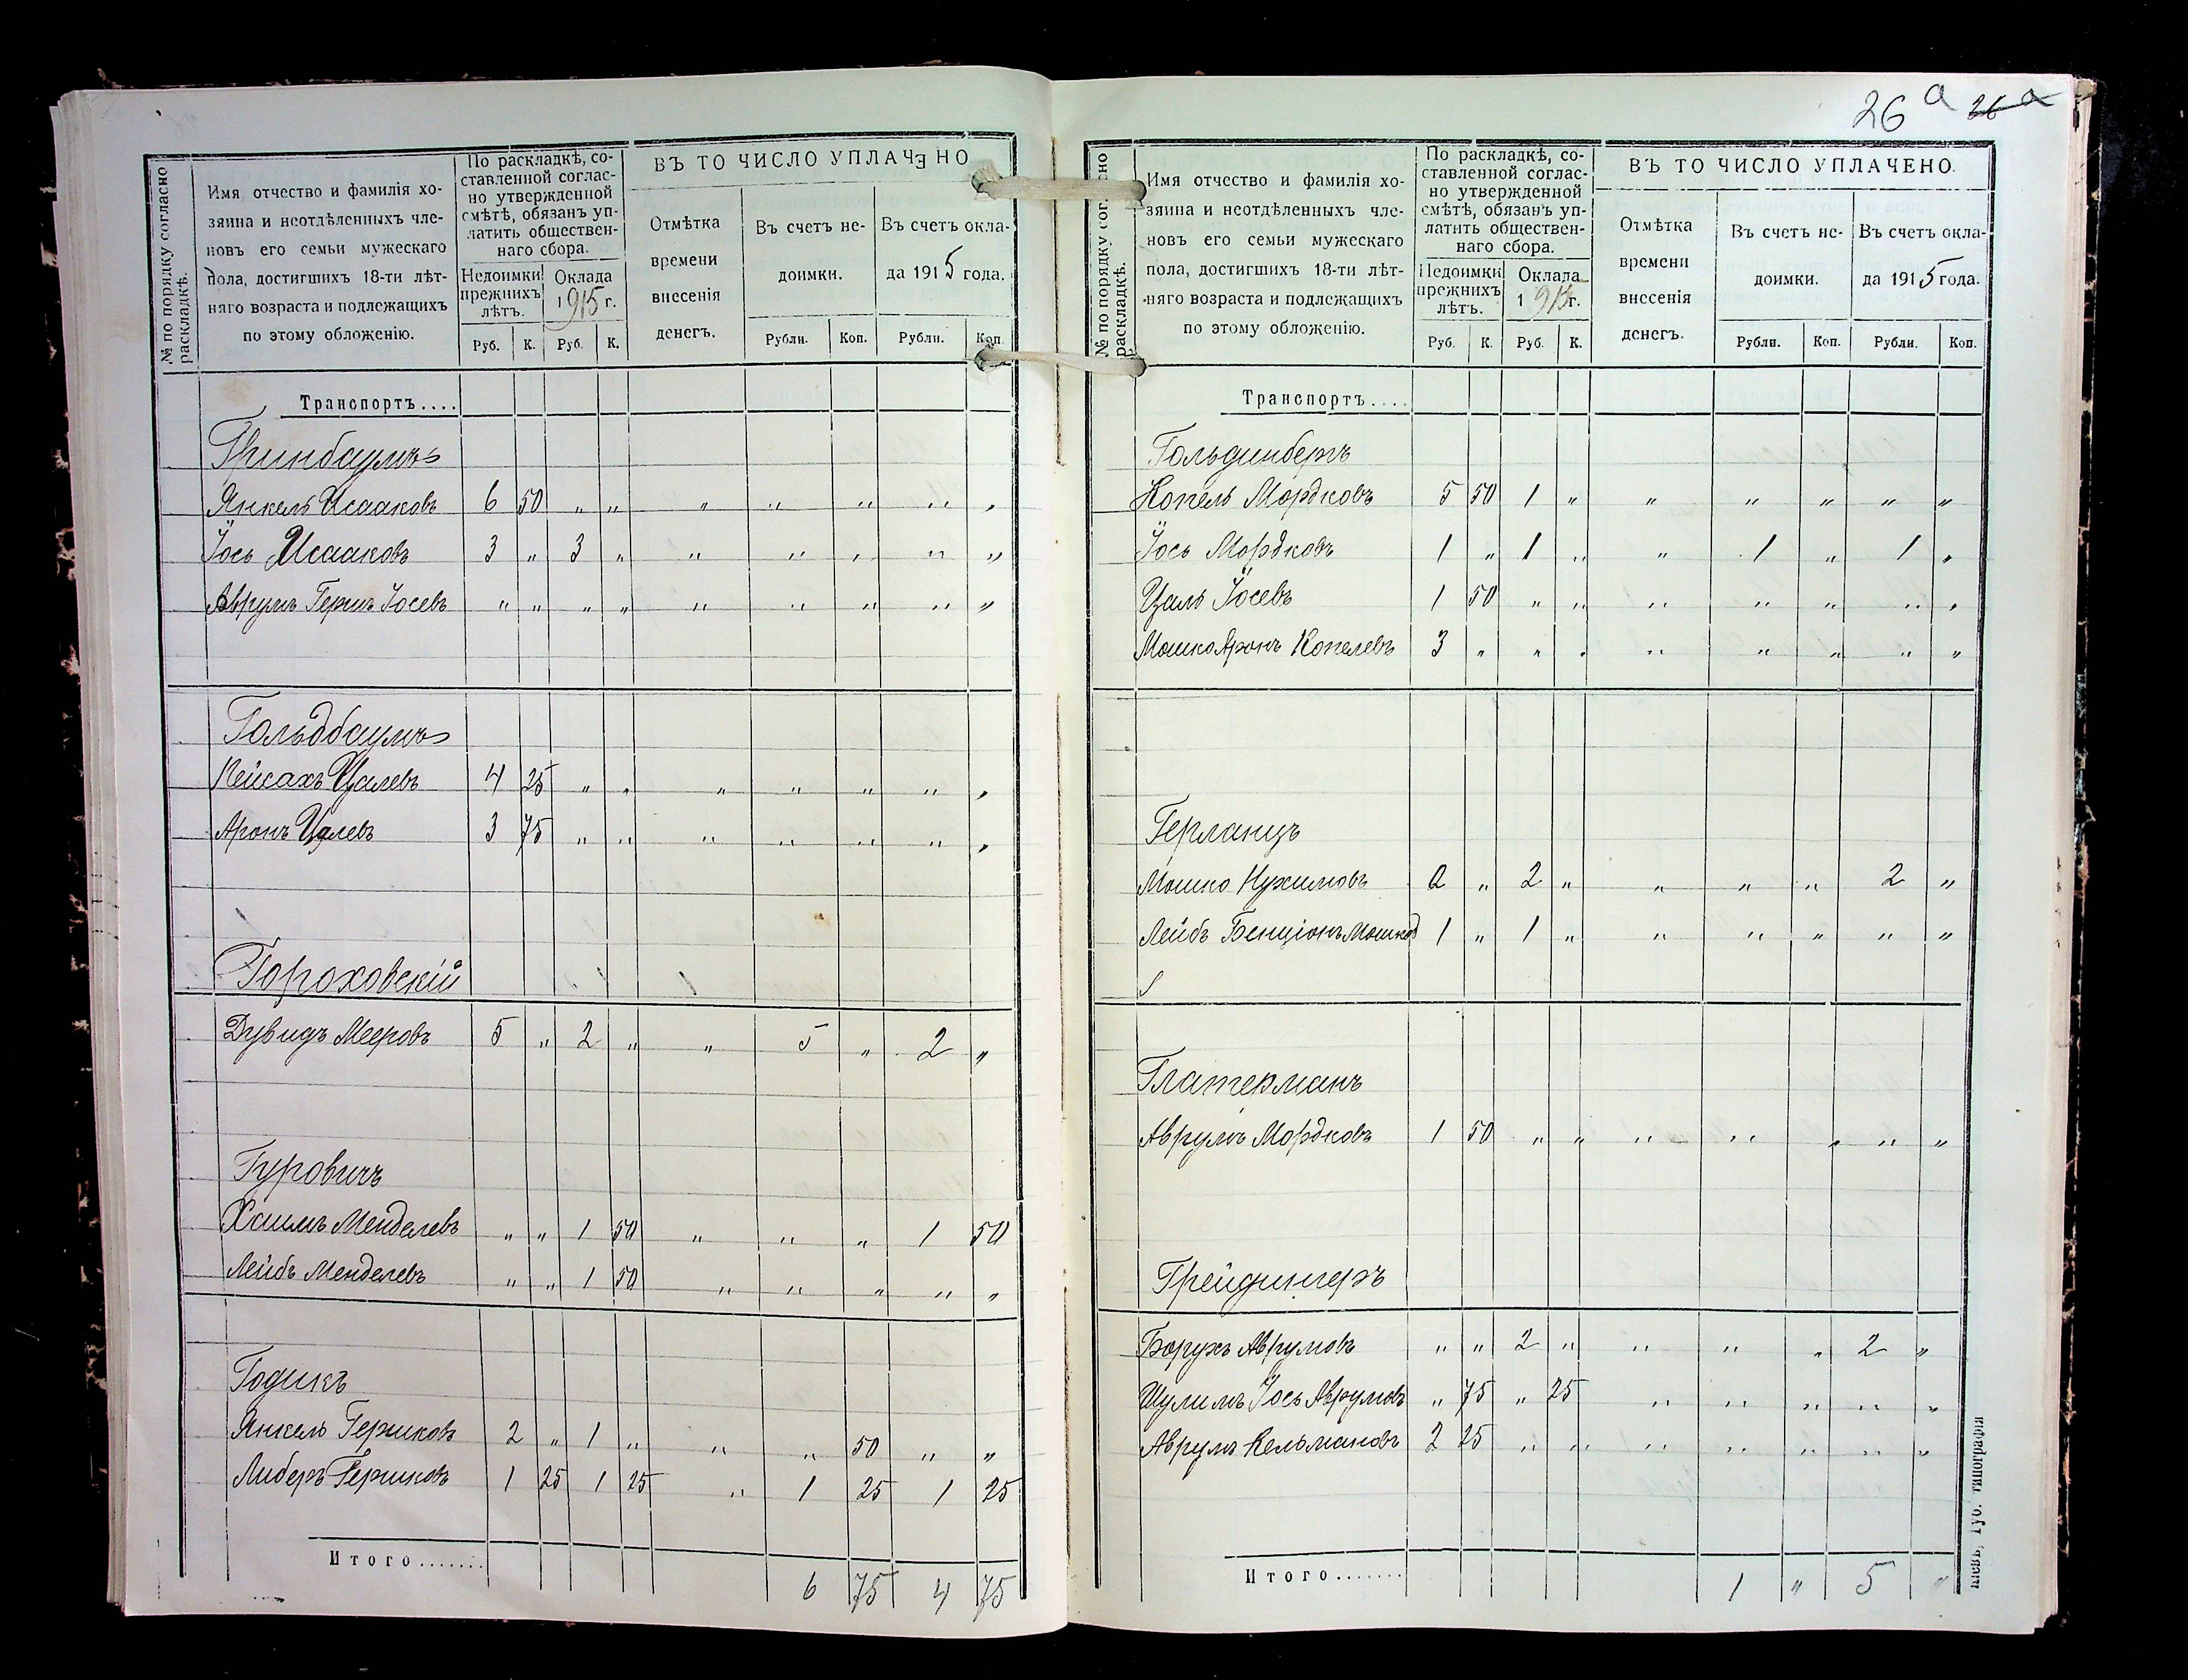 26 а 26 а
№ по порядку согласно раскладкѣ.
Имя отчество и фамилія хо-
зяина и неотдѣленныхъ чле-
новъ его семьи мужескаго
пола, достигшихъ 18-ти лѣт-
няго возраста и подлежащихъ
по этому обложенію.
По раскладкѣ, со-
ставленной соглас-
но утвержденной
смѣтѣ, обязанъ уп-
латить обществен-
наго сбора.
Недоимки прежнихъ лѣтъ.
Оклада 1915 г.
Руб. К. Руб. К.
ВЪ ТО ЧИСЛО УПЛАЧЕНО
Отмѣтка
времени
внесенія
денегъ.
Въ счетъ не-
доимки.
Въ счетъ окла-
да 1915 года.
Рубли. Коп. Рубли. Коп.
Транспортъ....
Гринбаумъ
Янкель Исааковъ 6 50 " " " " " " "
Іось Исааковъ 3 " 3 " " " " " "
Аврумъ Гершъ Іосевъ " " " " " " " " "
Гольдбаумъ
Пейсахъ Цалевъ 4 25 " " " " " " "
Аронъ Цалевъ 3 75 " " " " " " "
Гороховскій
Дувидъ Мееровъ 5 " 2 " " 5 " 2 "
Гуровичъ
Хаимъ Менделевъ " " 1 50 " " " 1 50
Лейбъ Менделевъ " " 1 50 " " " " "
Годикъ
Янкель Гершковъ 2 " 1 " " " 50 " "
Либеръ Гершковъ 1 25 1 25 " 1 25 1 25
Итого....... 6 75 4 75
№ по порядку согласно раскладкѣ.
Имя отчество и фамилія хо-
зяина и неотдѣленныхъ чле-
новъ его семьи мужескаго
пола, достигшихъ 18-ти лѣт-
няго возраста и подлежащихъ
по этому обложенію.
По раскладкѣ, со-
ставленной соглас-
но утвержденной
смѣтѣ, обязанъ уп-
латить обществен-
наго сбора.
Недоимки прежнихъ лѣтъ.
Оклада 1915 г.
Руб. К. Руб. К.
ВЪ ТО ЧИСЛО УПЛАЧЕНО.
Отмѣтка
времени
внесенія
денегъ.
Въ счетъ не-
доимки.
Въ счетъ окла-
да 1915 года.
Рубли. Коп. Рубли. Коп.
Транспортъ....
Гольдинберъ
Копель Мордковъ 5 50 1 " " " " " "
Іось Мордковъ 1 " 1 " " 1 " 1 "
Цаль Іосевъ 1 50 " " " " " " "
Мошко Аронъ Копелевъ 3 " " " " " " " "
Герланцъ
Мошко Нухимовъ 2 " 2 " " " " 2 "
Лейбъ Бенціонъ Мошков 1 " 1 " " " " " "
Глатерманъ
Аврумъ Мордковъ 1 50 " " " " " " "
Грейдингеръ
Борухъ Аврумовъ " " 2 " " " " 2 "
Шулимъ Іось Аврумовъ " 75 " 25 " " " " "
Аврумъ Кельмановъ 2 25 " " " " " " "
Итого....... 1 " 5 "
Кіевъ, Губ. типографія